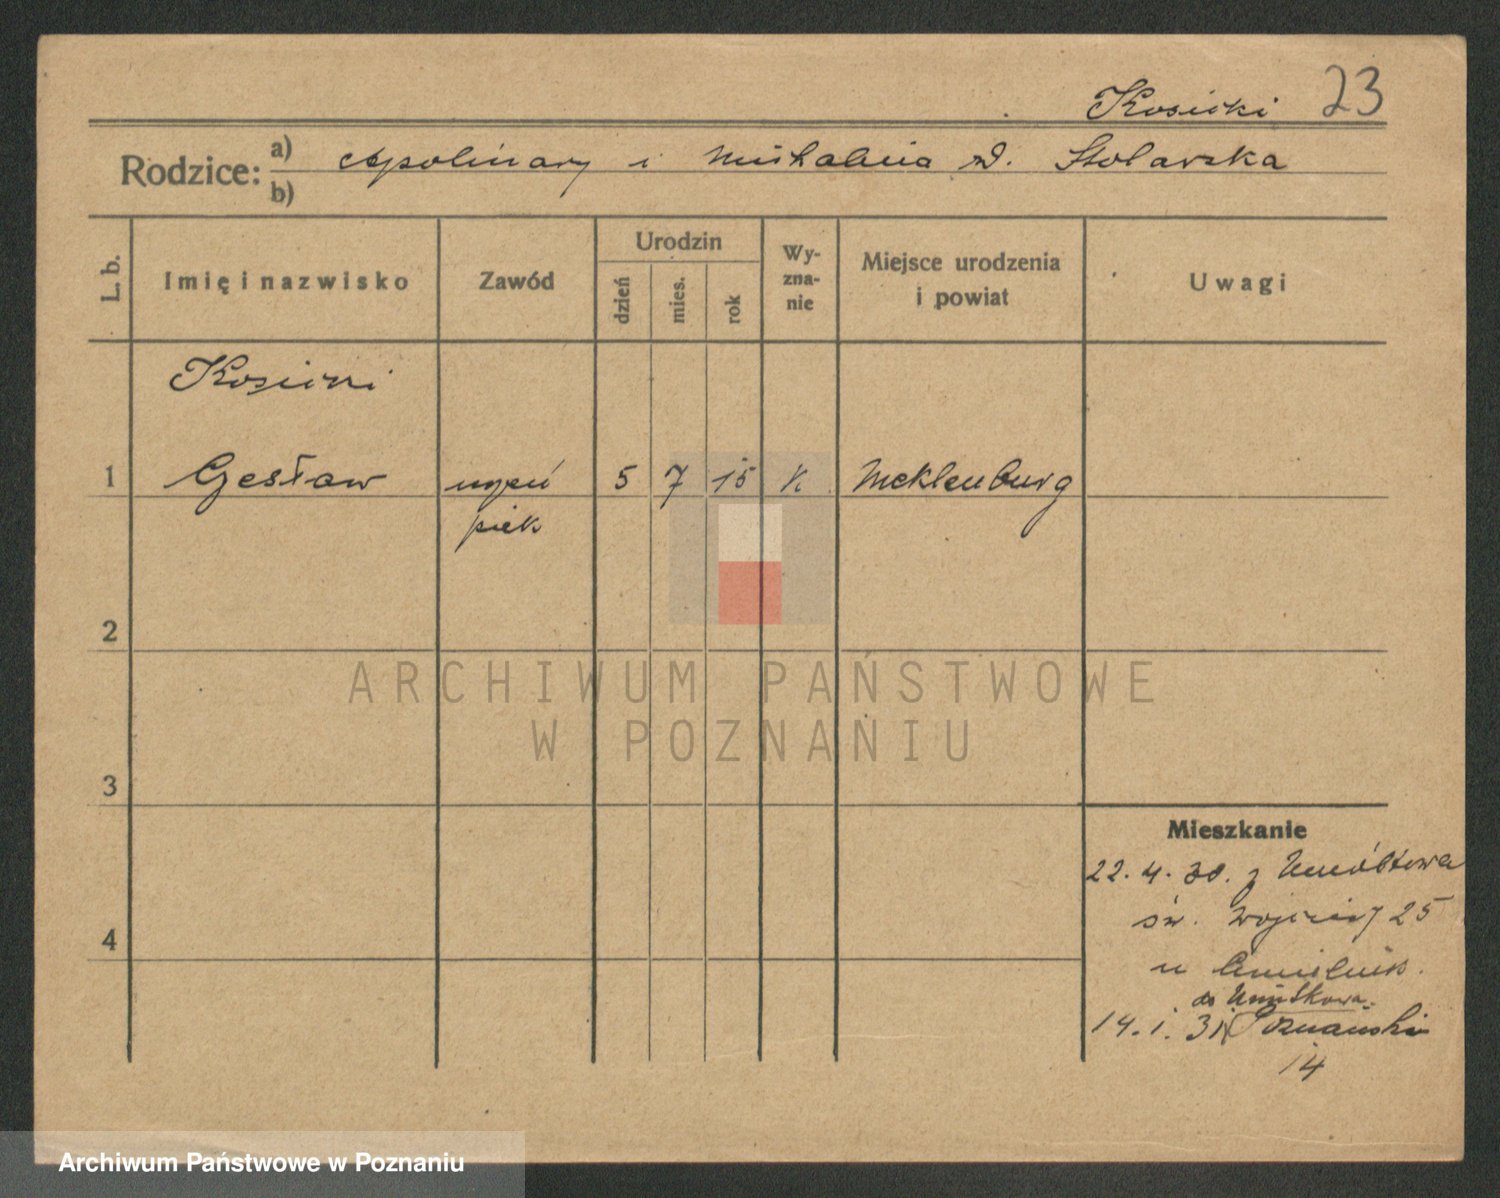 Kosicki 23
Rodzice: a) Apolinary i Michalina d. Stolarska
b)
L. b. Imię i nazwisko Zawód Urodzin dzień mies. rok Wy-zna-nie Miejsce urodzenia i powiat Uwagi
Kosicki
1 Czesław uczeń 5 7 15 k Mecklenburg
piek.
2
ARCHIWUM PAŃSTWOWE
W POZNANIU
3
Mieszkanie
22. 4. 30. z
św. Wojciech 25
4
u
do
14. 1. 31 Poznańska
14
Archiwum Państwowe w Poznaniu